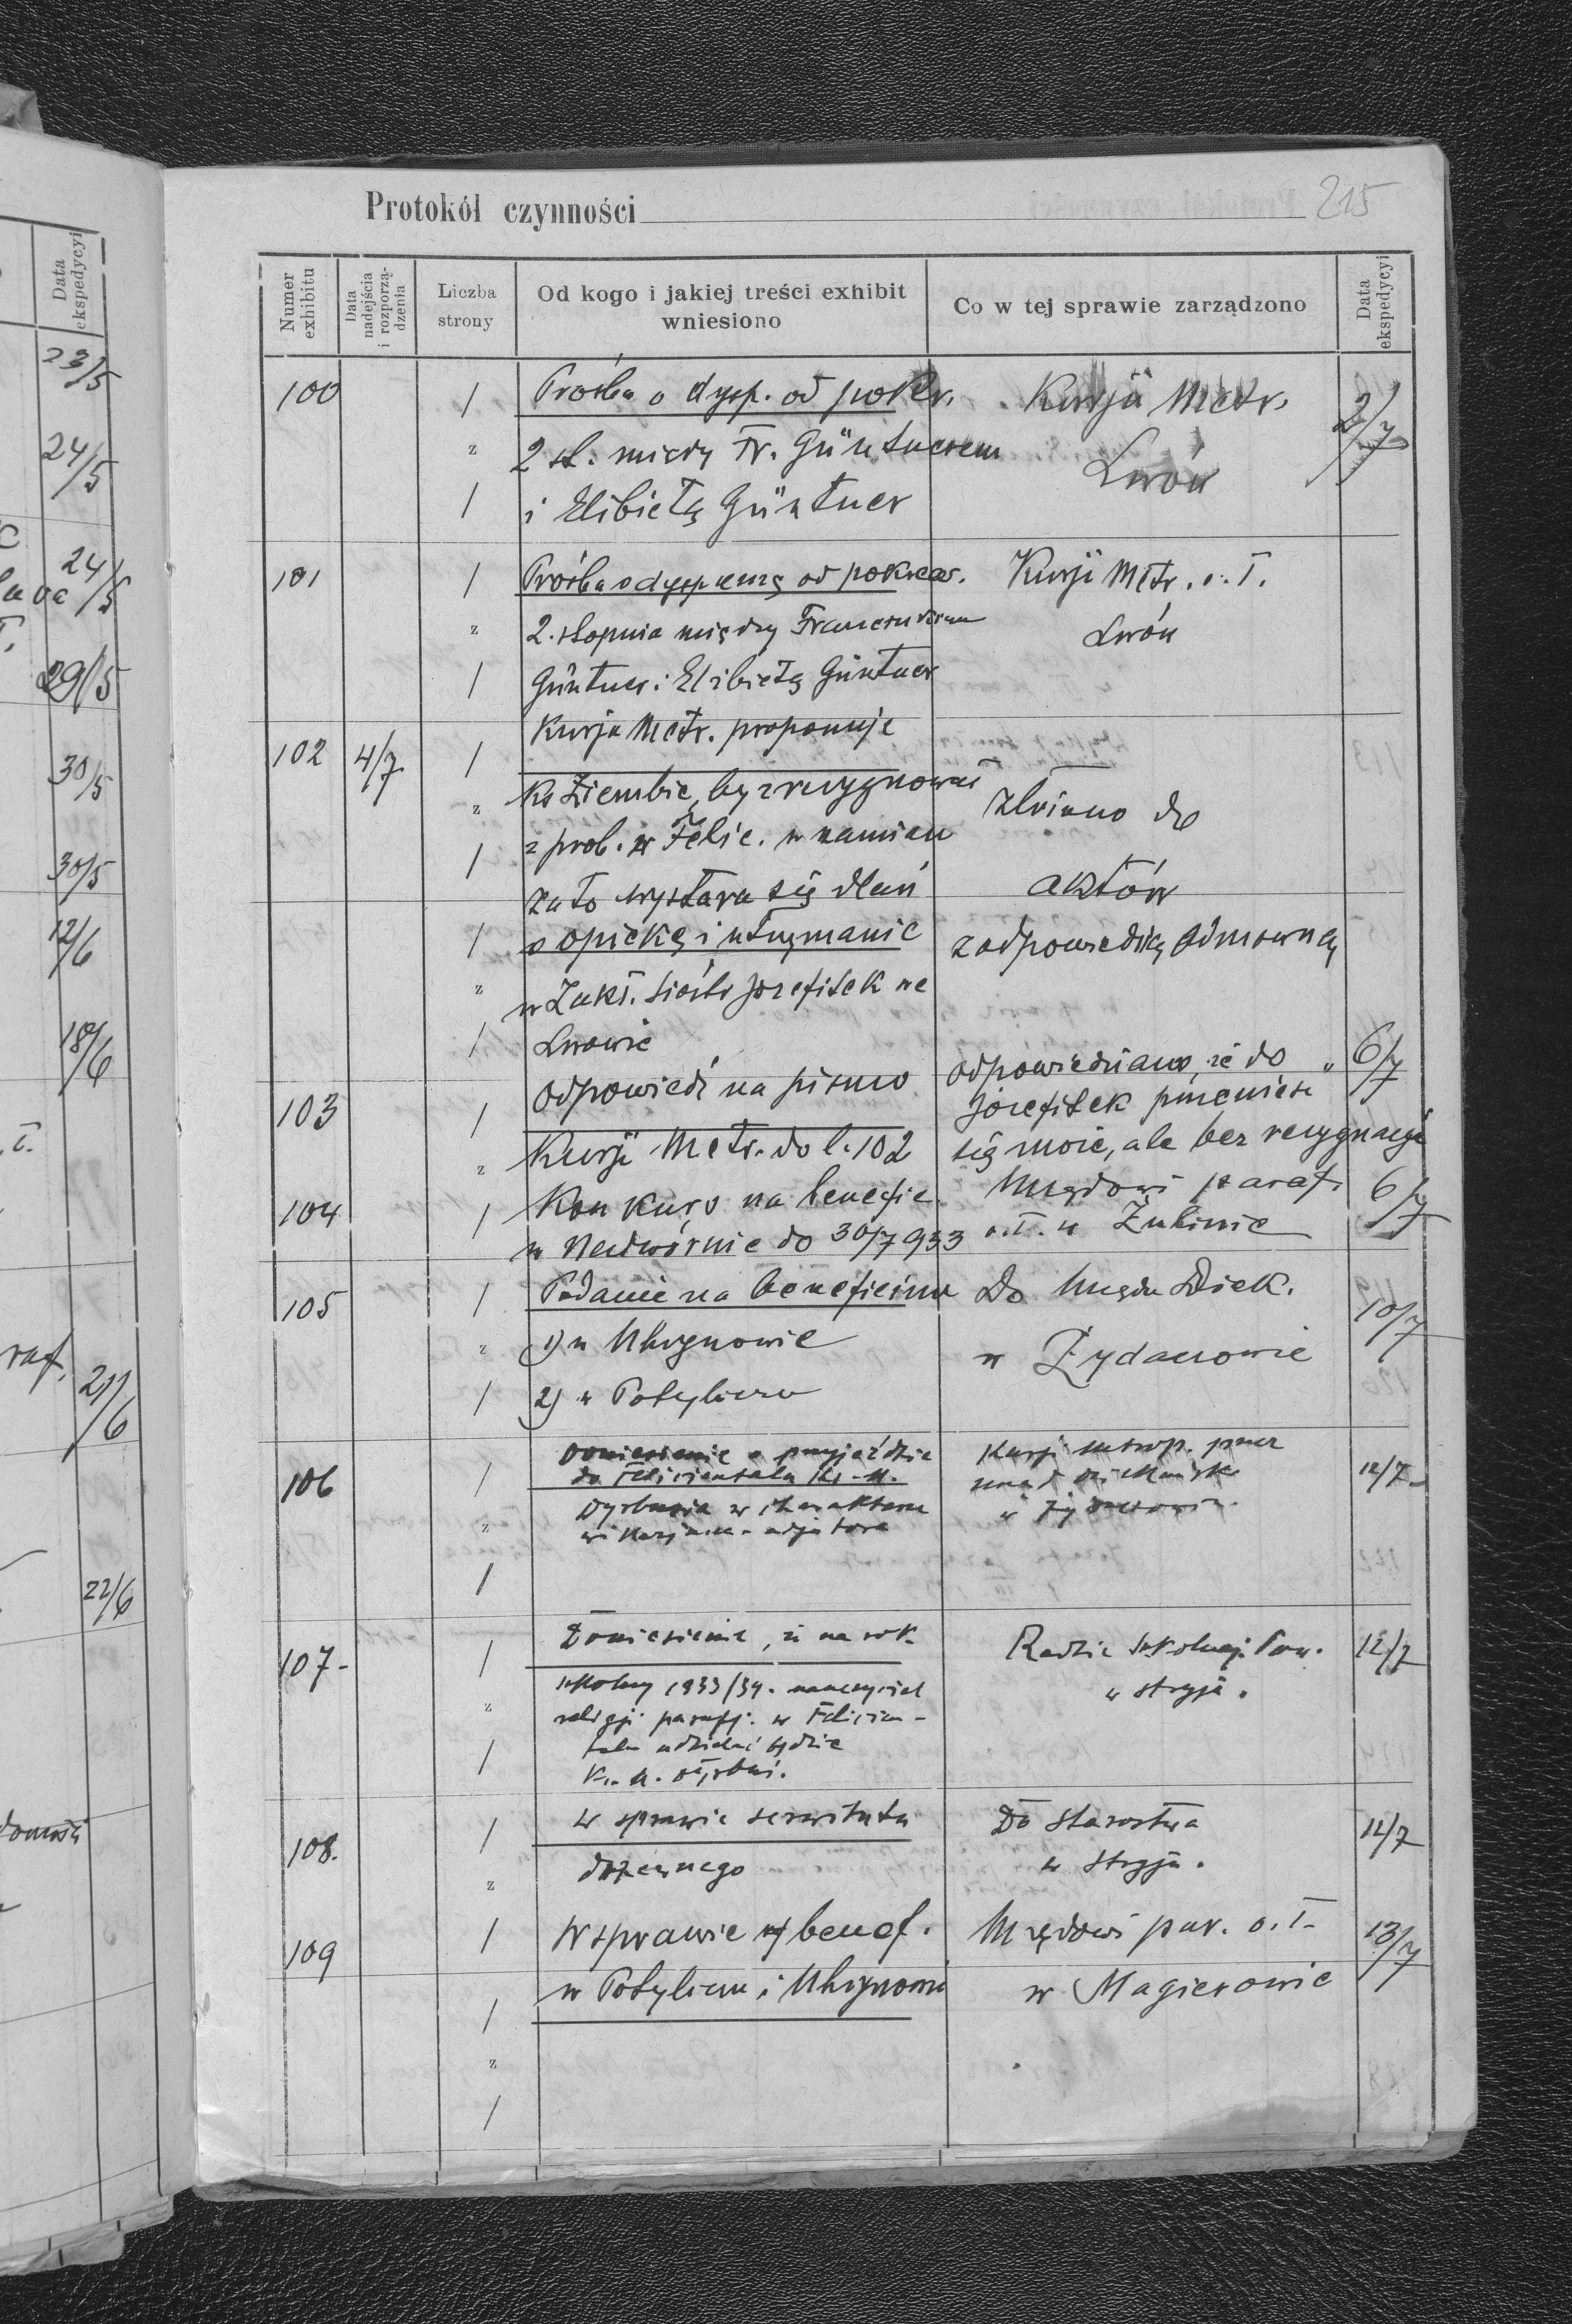 Data
ekspedycyi
23/5
24/5
24/5
29/5
30/5
30/5
12/6
18/6
21/6
22/6
Protokół czynności
215
Numer
exhibitu
Data
nadejścia
i rozporzą-
dzenia
Liczba
strony
Od kogo i jakiej treści exhibit
wniesiono
Co w tej sprawie zarządzono
Data
ekspedycyi
100
/ z /
Prośba o dysp. od pokr.
2 st. między Fr. Güntnerem
i Elżbietą Güntner
Kurji Metr.
Lwów
2/7
101
/ z /
Prośba o dyspensę od pokrew.
2. stopnia między Franciszkiem
Güntner i Elżbietą Güntner
Kurji Metr. o. ł.
Lwów
102
4/7
/ z /
Kurja Metr. proponuje
ks Ziembie, by zrezygnował
z prob. w Felic. w zamian
za to wystara się dlań
/ z /
o opiekę i utrzymanie
w Zakł. Sióstr Józefitek we
Lwowie
złożono do
aktów
z odpowiedzią odmowną
103
/ z
Odpowiedź na pismo
Kurji Metr. do l. 102
odpowiedziano, że do
Józefitek przenieść
się może, ale bez rezygnacji
6/7
104
/
Konkurs na benefic.
w Nadwórnie do 30/7 933
Urzędowi paraf.
o. ł. w Żulinie
6/7
105
/ z /
Podanie na beneficium
1) w Uhrynowie
2) w Potyliczu
Do Urzędu Dziek.
w Żydaczowie
10/7
106
/ z /
Doniesienie o przyjeździe
do Felicienthalu ks. M.
w charakterze
wikarjusza-adjutora
Kurji metrop. przez
urząd dziekański
w Żydaczowie.
12/7
107-
/ z /
Doniesienie, że na rok
szkolny 1933/34. nauczyciel
religji parafj. w Felicien-
talu udzielać będzie
Radzie szkolnej Pow.
w Stryju.
12/7
108.
/ z
W sprawie serwitutu
drzewnego
Do Starostwa
w Stryju.
12/7
109
/ / z /
W sprawie benef.
w Potyliczu i Uhrynowie
Urzędowi par. o. ł.
w Magierowie
13/7